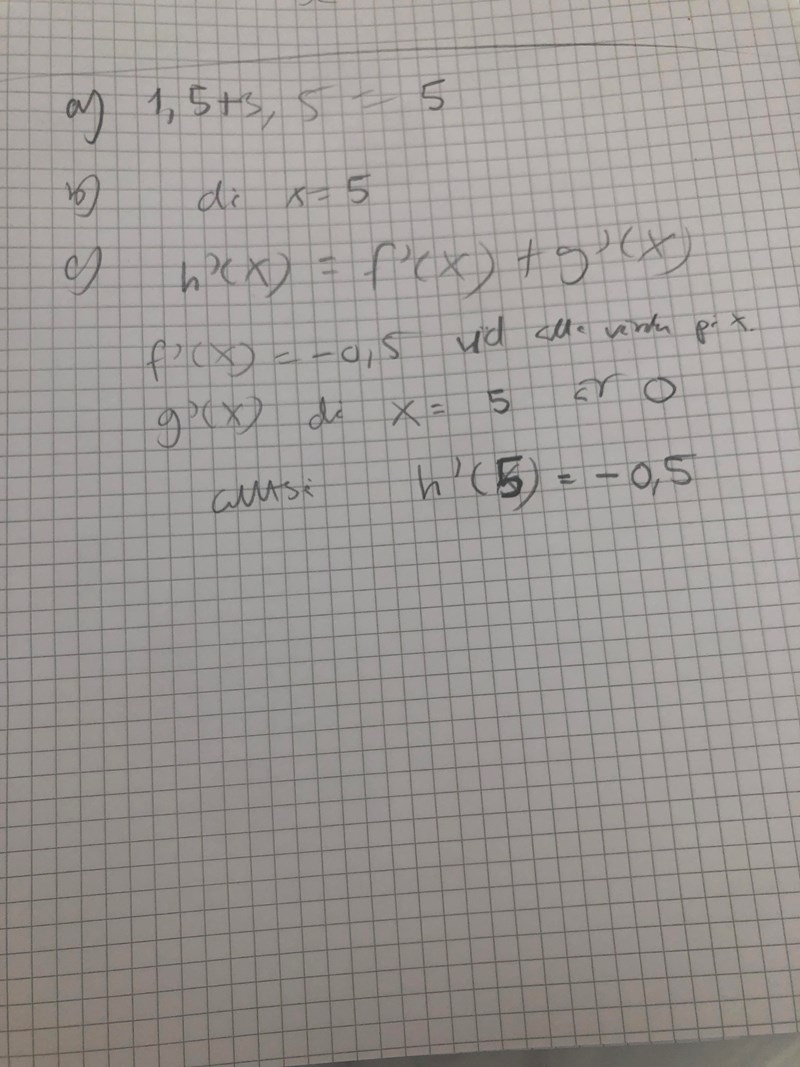 a) 1,5+3,5 = 5
b) då x=5
c) h'(x) = f'(x) + g'(x)
f'(x) = -0,5 vid alla värden på x.
g'(x) då x= 5 är 0
alltså h'(5) = -0,5